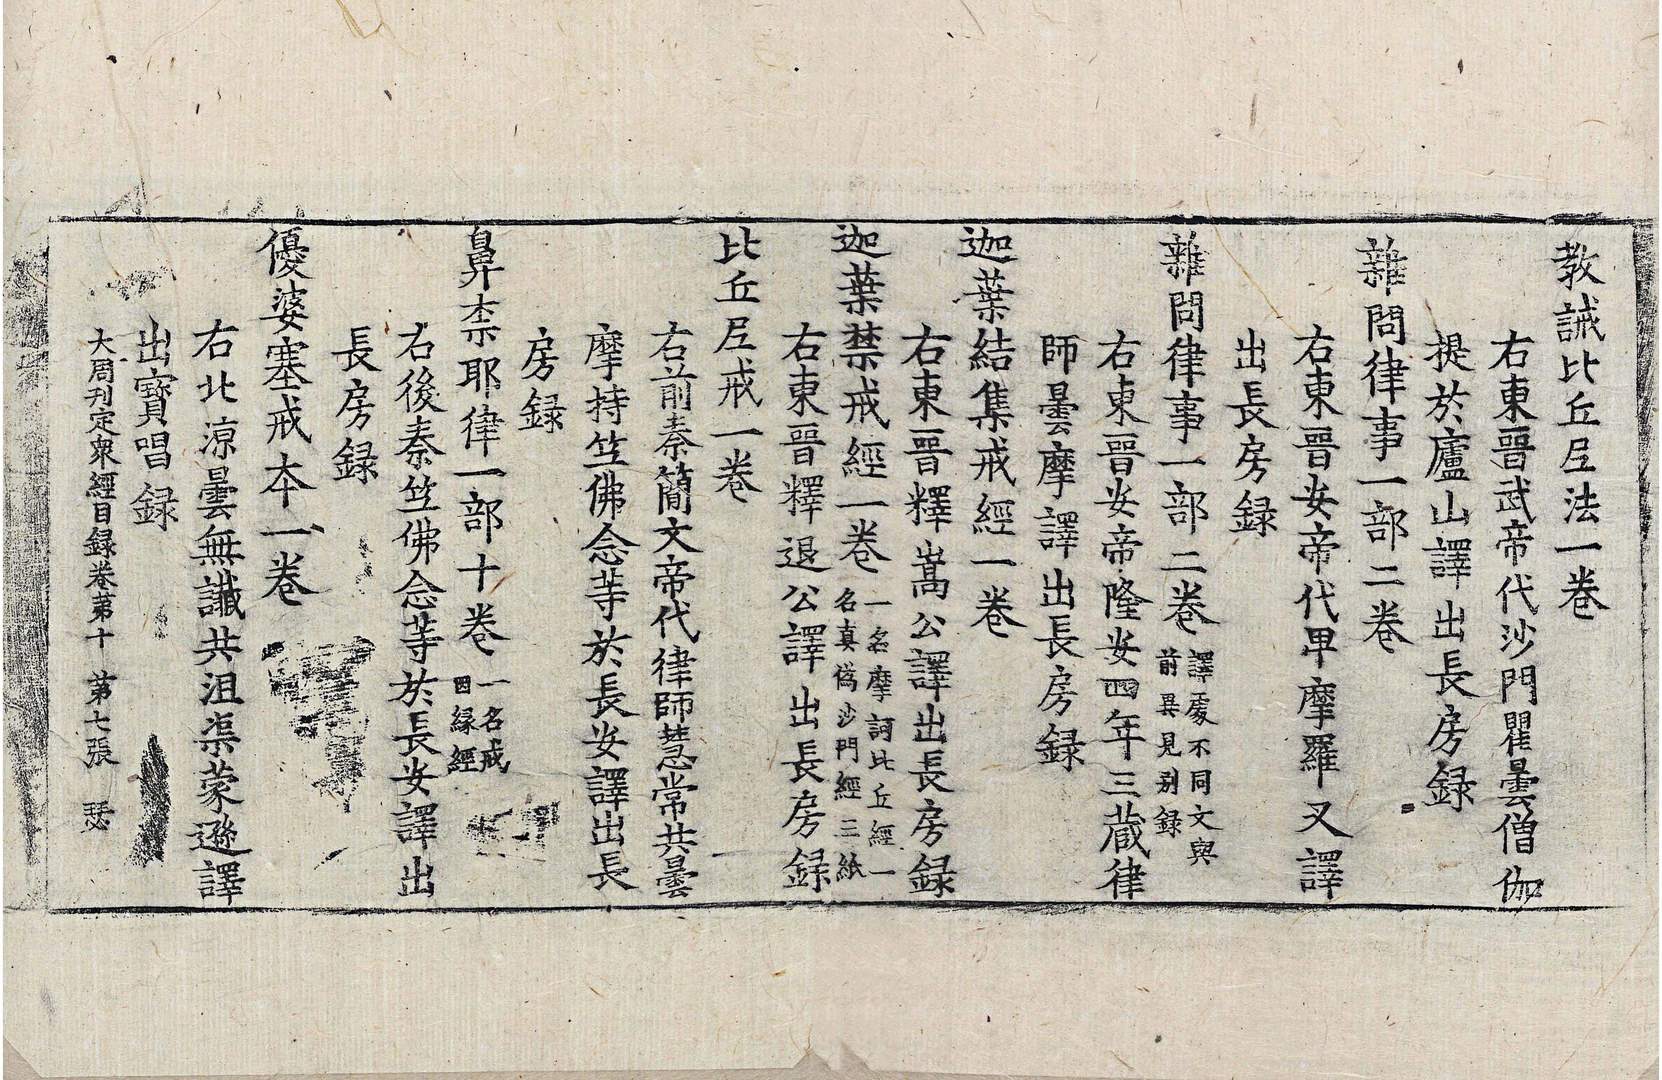 教誡比丘尼法一卷
右東晉武帝代沙門瞿曇僧伽
提於廬山譯出長房録
雜問律事一部二卷
右東晉安帝代卑摩羅叉譯
出長房録
雜問律事一部二卷 譯處不同文與
前異見别録
右東晉安帝隆安四年三藏律
師曇摩譯出長房録
迦葉結集戒經一卷
右東晉釋嵩公譯出長房録
迦葉禁戒經一卷 一名摩訶比丘經一
名真僞沙門經三紙
右東晉釋退公譯出長房録
比丘尼戒一卷
右前秦簡文帝代律師慧常共曇
摩持竺佛念等於長安譯出長
房録
鼻柰耶律一部十卷 一名戒
因縁經
右後秦竺佛念等於長安譯出
長房録
優婆塞戒本一卷
右北涼曇無讖共沮渠蒙遜譯
出寶唱録
大周刊定衆經目録卷第十 第七張 瑟